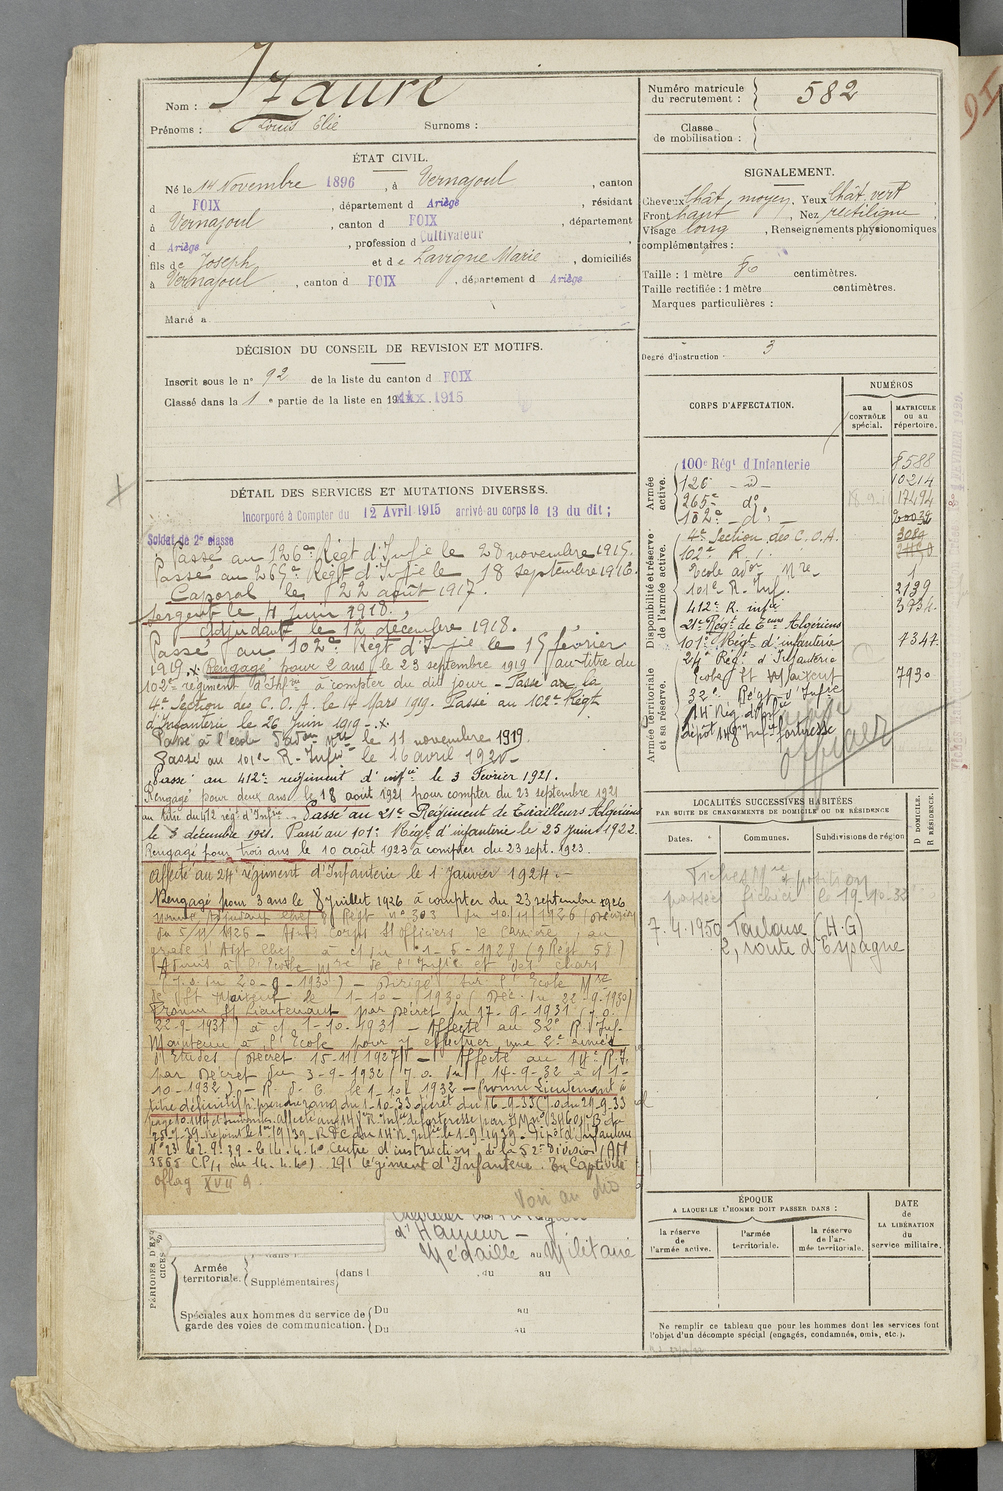 Nom : Izaure
Prénoms : Louis Elie Surnoms :
ÉTAT CIVIL.
Né le 14 Novembre 1896, à Vernajoul, canton
d FOIX, département d Ariège, résidant
à Vernajoul, canton d FOIX, département
d Ariège, profession d Cultivateur
fils de Joseph et de Lavigne Marie, domiciliés
à Vernajoul, canton d FOIX, département d Ariège
Marié à
DÉCISION DU CONSEIL DE REVISION ET MOTIFS.
Inscrit sous le n° 92 de la liste du canton d FOIX
Classé dans la 1e partie de la liste en 1915
DÉTAIL DES SERVICES ET MUTATIONS DIVERSES.
Incorporé à Compter du 12 Avril 1915 arrivé au corps le 13 du dit ;
Soldat de 2e classe
Passé au 126e Régt d'Infie le 28 novembre 1915.
Passé au 265e Régt d'Infie le 18 septembre 1916.
Caporal le 22 août 1917.
Sergent le 4 Juin 1918.
Adjudant le 12 décembre 1918.
Passé au 102e Régt d'Infie le 15 février
1919. x Rengagé pour 2 ans le 23 septembre 1919 au titre du
102e régiment d'Infrie à compter du dit jour - Passé au la
4e Section des C.O.A. le 14 Mars 1919. Passé au 102e Régt
d'Infanterie le 26 Juin 1919 - x
Passé à l'école d'adon Mre le 11 novembre 1919.
Passé au 101e R. Infie le 16 avril 1920
Passé au 412e régiment d'infie le 3 Février 1921.
Rengagé pour deux ans le 18 août 1921 pour compter du 23 septembre 1921
au titre du 412 régt d'Infie. Passé au 21e Régiment de Tirailleurs Algériens
le 8 décembre 1921. Passé au 101e Régt d'infanterie le 25 Juin 1922.
Rengagé pour trois ans le 10 août 1923 à compter du 23 sept. 1923.
Affecté au 24e régiment d'Infanterie le 1 Janvier 1924.-
Rengagé pour 3 ans le 8 juillet 1926 à compter du 23 septembre 1926
Nommé Adjudant Chef Régt n° 303 du 10/11/1926 (Décision
du 5/11/1926 - Corps St Officiers de Carrière, au
grade d'Adjt Chef à c/ du 1-6-1928 (Régt 58)
Admis à l'Ecole Mre de l'Infie et des chars
(J.O. du 20-9-1930) - Dirigé sur l'école Mre
de St Maixent le 1-10-1930 (Déc. du 22-9-1930)
Promu St Lieutenant par Décret du 17-9-1931 (J.O.
22-9-1931) à c/ 1-10-1931 - Affecté au 32e R. Inf.
Maintenu à l'école pour y effectuer une 2e année
d'Etudes (Décret 15-11-1927) - Affecté au 14e R.I.
par Décret du 3-9-1932 (J.O. du 14-9-32 à c/ 1-
10-1932) - R.D.C. le 1-10-1932 - promu Lieutenant à
titre définitif du 1-10-33 décret du 16-9-33 (J.O. du 21-9-33
N° 23 le 2.9.39 - le 14.4.40 Centre d'instruction de la 52e Division (
3865 C.P/1 du 14.4.40). 291 régiment d'Infanterie. En Captivité
oflag XVII A.
Voir au dos
d'Honneur -
Médaille Militaire
PÉRIODES D'EXERCICES
Armée territoriale. Supplémentaires (dans l du au
Spéciales aux hommes du service de garde des voies de communication. Du au
Du au
Numéro matricule du recrutement : 582
Classe de mobilisation :
SIGNALEMENT.
Cheveux Chât. moyen, Yeux Chât. vert,
Front haut, Nez rectiligne,
Visage long, Renseignements physionomiques
complémentaires :
Taille : 1 mètre 80 centimètres.
Taille rectifiée : 1 mètre centimètres.
Marques particulières :
Degré d'instruction : 3
CORPS D'AFFECTATION.
NUMÉROS
au CONTRÔLE spécial.
MATRICULE ou au répertoire.
Armée active.
100e Régt d'Infanterie 8588
126 - d - 10214
265e d° 17494
102e - d° -
Disponibilité et réserve de l'armée active.
4e Section des C.O.A.
102e R.I.
Ecole adon Mre 1
101e R. Inf. 2139
412e R. infie 3734
21e Régt de Tirs Algériens
101e Régt d'infanterie 7347
Armée territoriale et sa réserve.
24e Régt d'Infanterie
Ecole St Maixent 7930
32e Régt d'Infie
14 Rég. d'Infie
Dépôt 148 Infie forteresse
officier
LOCALITÉS SUCCESSIVES HABITÉES
PAR SUITE DE CHANGEMENTS DE DOMICILE OU DE RÉSIDENCE
Dates. Communes. Subdivisions de région
D DOMICILE. R RÉSIDENCE.
le 19.10.32
7.4.1950 Toulouse (H.G)
2, route d'Espagne
ÉPOQUE
A LAQUELLE L'HOMME DOIT PASSER DANS :
la réserve de l'armée active.
l'armée territoriale.
la réserve de l'armée territoriale.
DATE de LA LIBÉRATION du service militaire.
Ne remplir ce tableau que pour les hommes dont les services font
l'objet d'un décompte spécial (engagés, condamnés, omis, etc.).